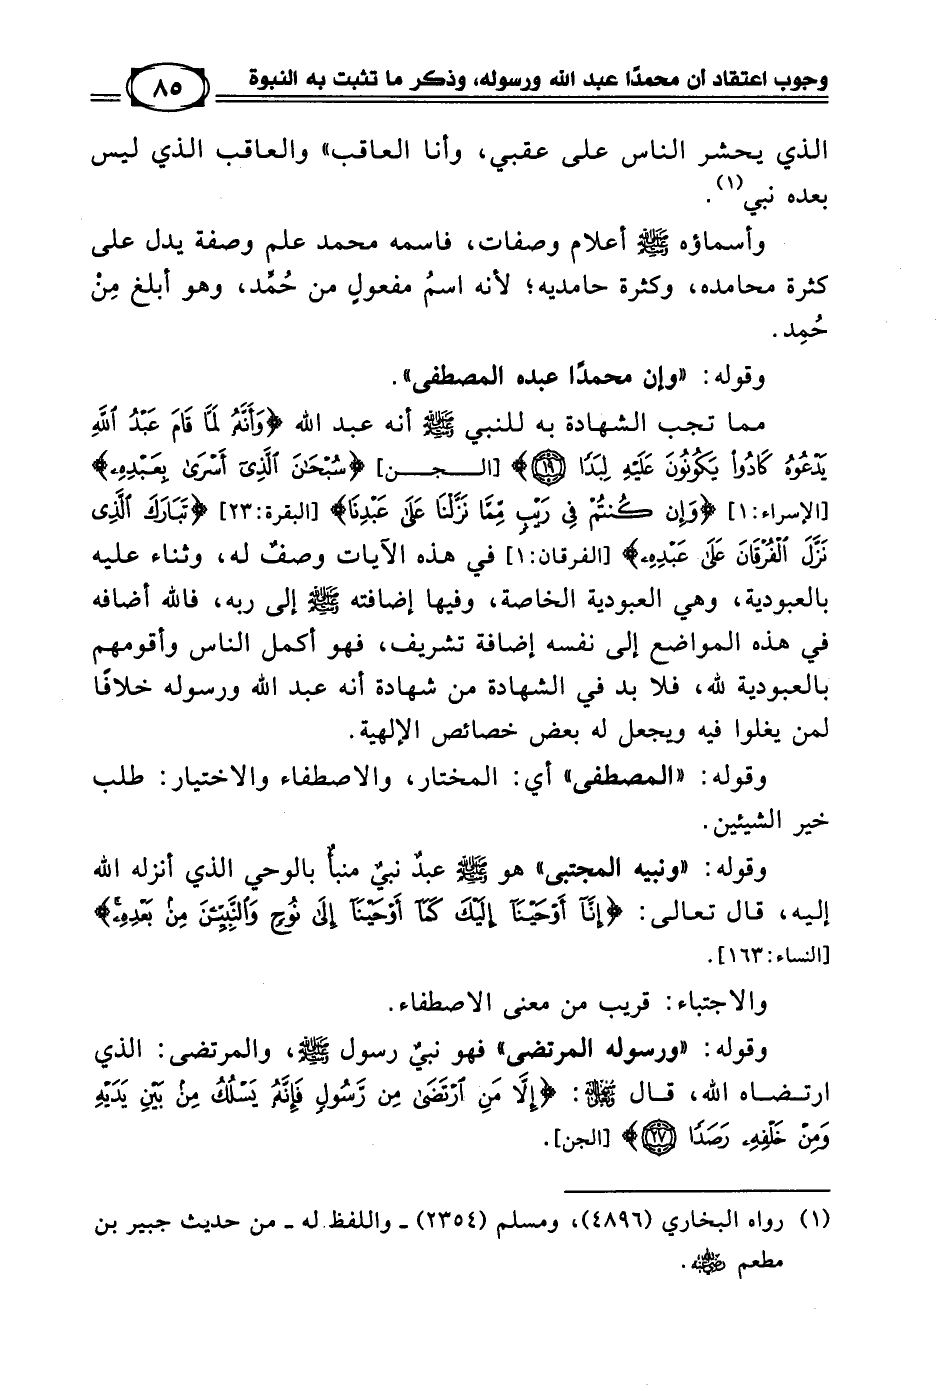 وجوب اعتقاد أن محمدًا عبد الله ورسوله، وذكر ما تثبت به النبوة ٨٥
الذي يحشر الناس على عقبي، وأنا العاقب» والعاقب الذي ليس
بعده نبي(١).
وأسماؤه ﷺ أعلام وصفات، فاسمه محمد علم وصفة يدل على
كثرة محامده، وكثرة حامديه؛ لأنه اسمُ مفعولٍ من حُمِّد، وهو أبلغ مِنْ
حُمِد.
وقوله: «وإن محمدًا عبده المصطفى».
مما تجب الشهادة به للنبي ﷺ أنه عبد الله ﴿وَأَنَّهُۥ لَمَّا قَامَ عَبْدُ ٱللَّهِ
يَدْعُوهُ كَادُوا۟ يَكُونُونَ عَلَيْهِ لِبَدًا ١٩﴾ [الـجـن] ﴿سُبْحَٰنَ ٱلَّذِىٓ أَسْرَىٰ بِعَبْدِهِۦ﴾
[الإسراء:١] ﴿وَإِن كُنتُمْ فِى رَيْبٍ مِّمَّا نَزَّلْنَا عَلَىٰ عَبْدِنَا﴾ [البقرة:٢٣] ﴿تَبَارَكَ ٱلَّذِى
نَزَّلَ ٱلْفُرْقَانَ عَلَىٰ عَبْدِهِۦ﴾ [الفرقان:١] في هذه الآيات وصفٌ له، وثناء عليه
بالعبودية، وهي العبودية الخاصة، وفيها إضافته ﷺ إلى ربه، فالله أضافه
في هذه المواضع إلى نفسه إضافة تشريف، فهو أكمل الناس وأقومهم
بالعبودية لله، فلا بد في الشهادة من شهادة أنه عبد الله ورسوله خلافًا
لمن يغلوا فيه ويجعل له بعض خصائص الإلهية.
وقوله: «المصطفى» أي: المختار، والاصطفاء والاختيار: طلب
خير الشيئين.
وقوله: «ونبيه المجتبى» هو ﷺ عبدٌ نبيٌ منبأٌ بالوحي الذي أنزله الله
إليه، قال تعالى: ﴿إِنَّآ أَوْحَيْنَآ إِلَيْكَ كَمَآ أَوْحَيْنَآ إِلَىٰ نُوحٍ وَٱلنَّبِيِّـۧنَ مِنۢ بَعْدِهِۦ﴾
[النساء:١٦٣].
والاجتباء: قريب من معنى الاصطفاء.
وقوله: «ورسوله المرتضى» فهو نبيٌ رسول ﷺ، والمرتضى: الذي
ارتـضـاه الله، قـال ﷻ: ﴿إِلَّا مَنِ ٱرْتَضَىٰ مِن رَّسُولٍ فَإِنَّهُۥ يَسْلُكُ مِنۢ بَيْنِ يَدَيْهِ
وَمِنْ خَلْفِهِۦ رَصَدًا ٢٧﴾ [الجن].
(١) رواه البخاري (٤٨٩٦)، ومسلم (٢٣٥٤) ـ واللفظ له ـ من حديث جبير بن
مطعم رضي الله عنه.